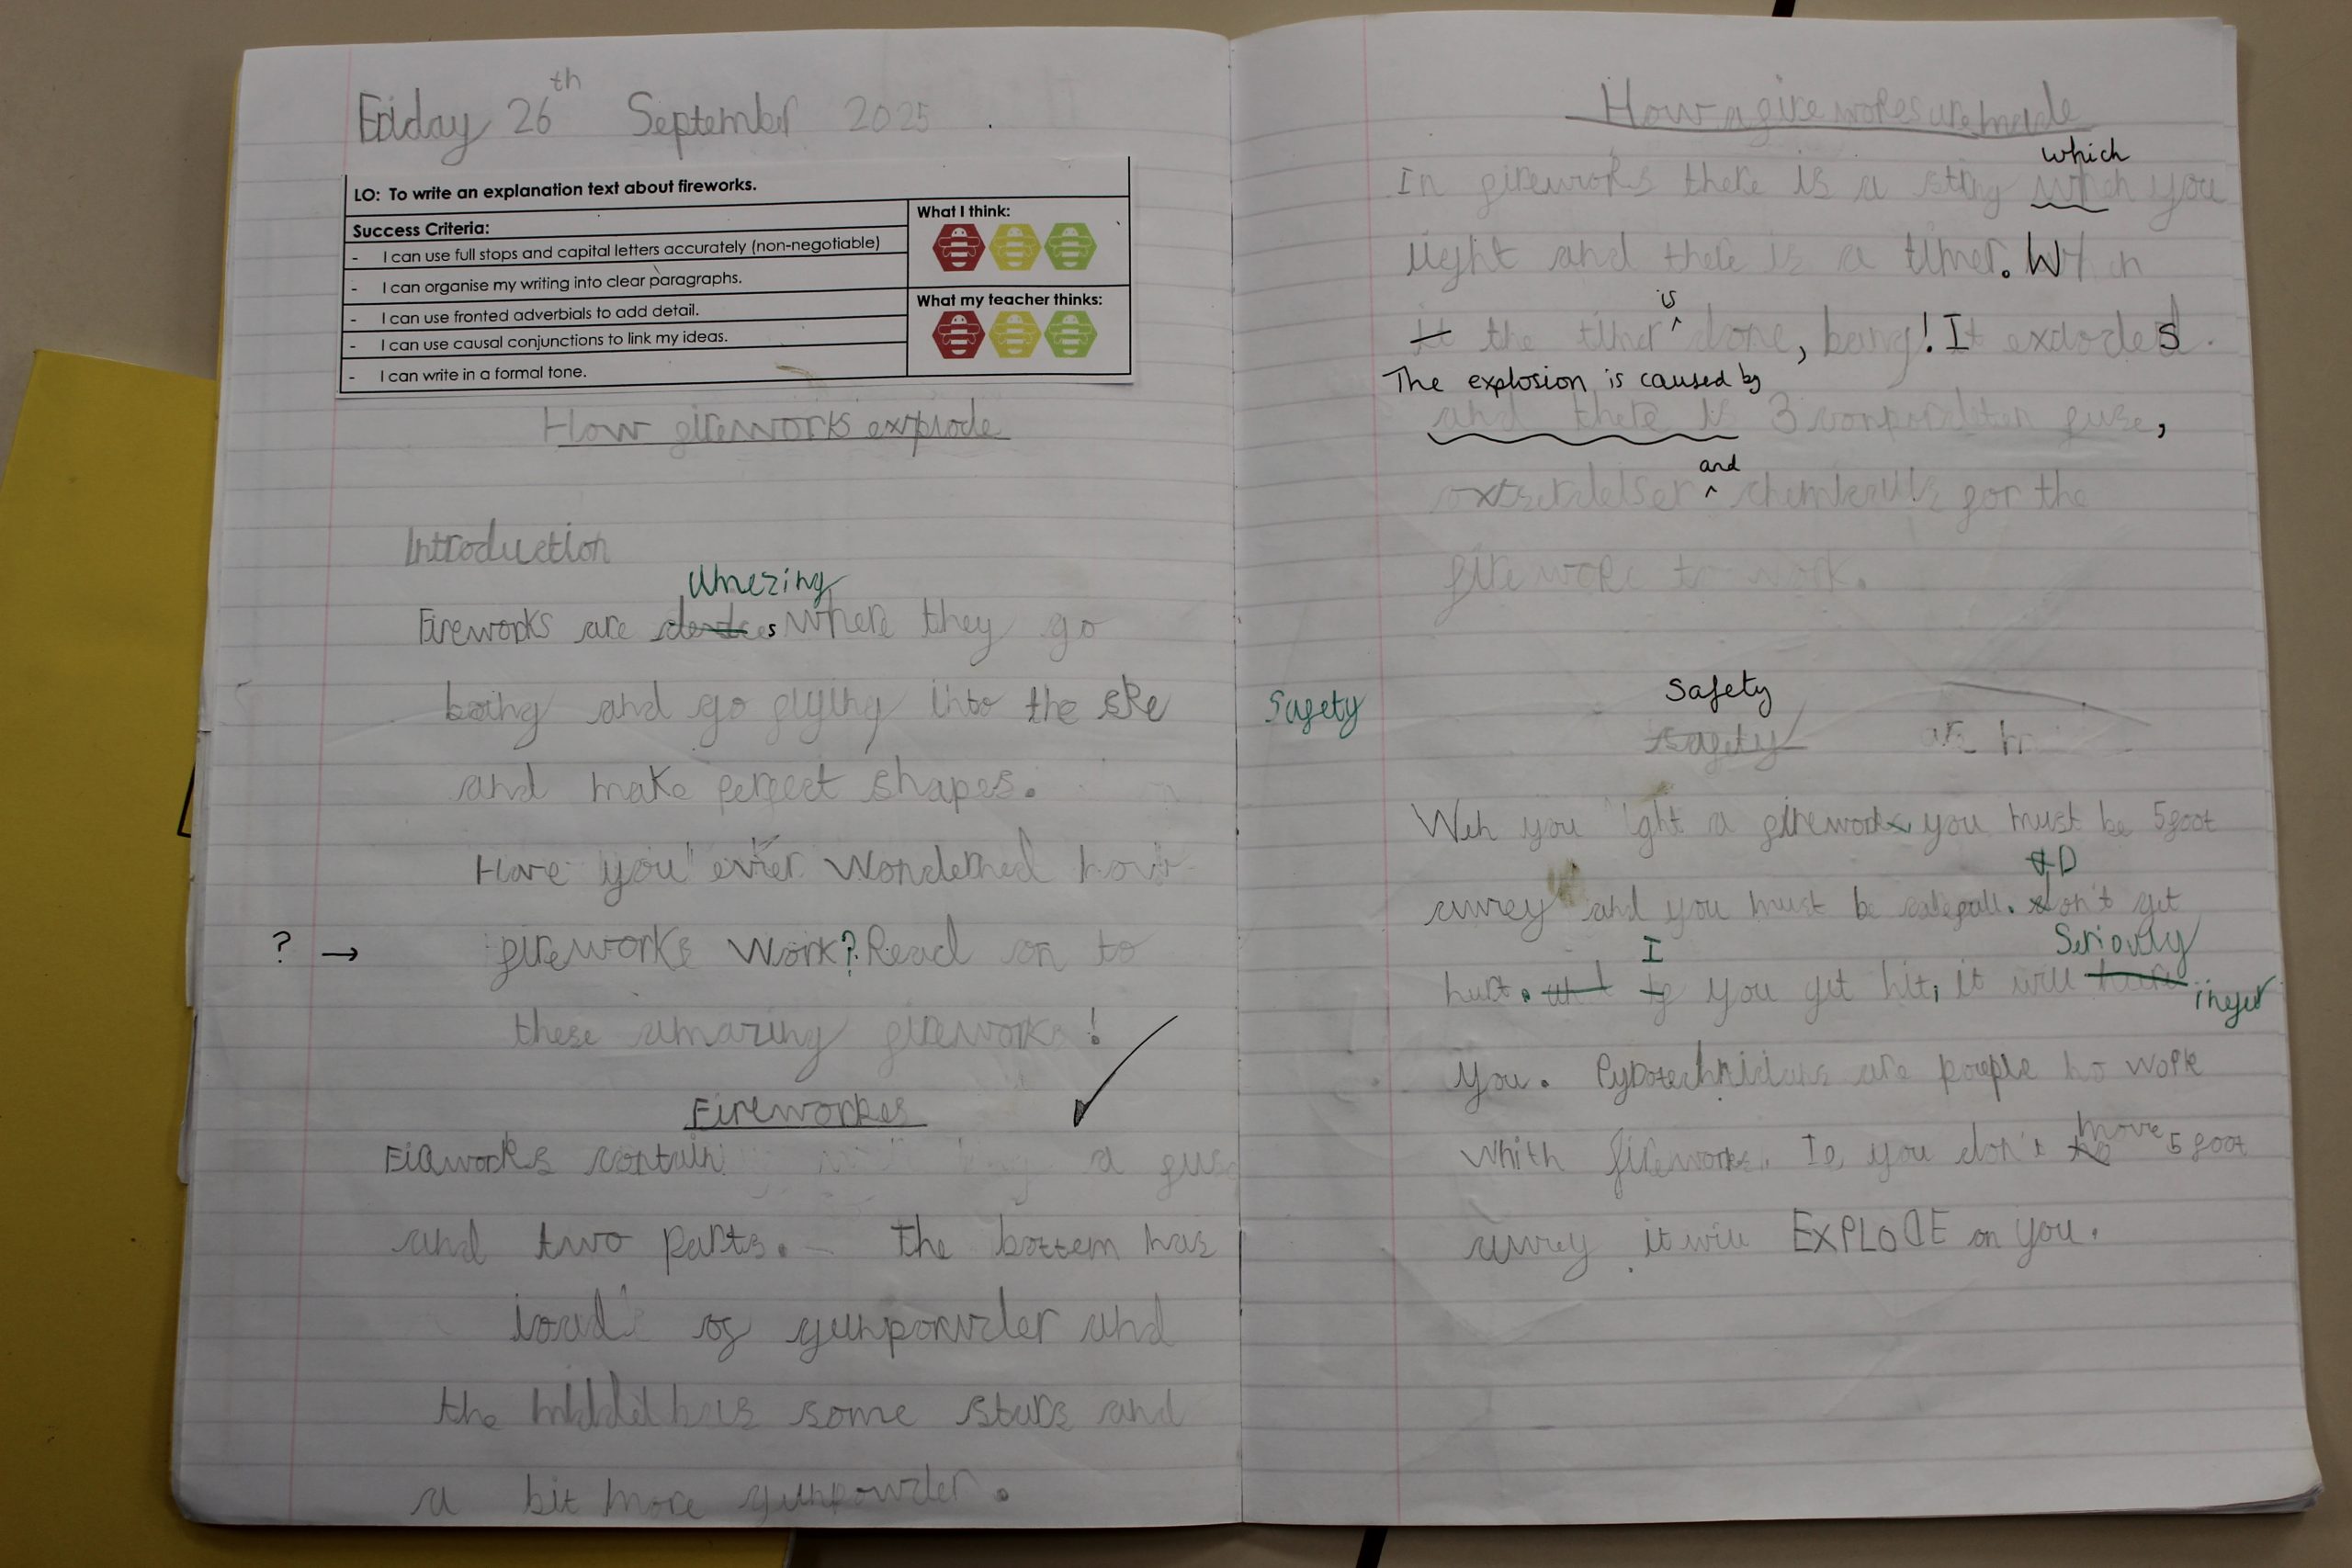 Friday 26th September 2025
LO: To write an explanation text about fireworks.
Success Criteria:
- I can use full stops and capital letters accurately (non-negotiable)
- I can organise my writing into clear paragraphs.
- I can use fronted adverbials to add detail.
- I can use causal conjunctions to link my ideas.
- I can write in a formal tone.
What I think:
What my teacher thinks:
How fireworks explode
Introduction
Amezing
Fireworks are where they go
boing and go flying into the ske
and make perfect shapes.
Have you ever Wonderned how
? → fireworks Work? Read on to
these amazing fireworks!
Fireworkes
Fiaworks contain a fuse
and two parts. the bottem has
loads of gunpowder and
the middel has some stars and
a bit more gunpowder.
How a fire workes are made
which
In fireworks there is a string which you
light and there is a timer. When
is
it the timer done, bang! It exclodes.
The explosion is caused by
and there is 3 fuse,
and
for the
fire work to work.
Safety
Safety
safety
Weh you light a firework you must be 5 foot
D
awey and you must be don't get
I Seriously
hurt. if you get hit, it will injer
you. are poeple ho work
move
Whith fireworks. If you don't 5 foot
awey it will EXPLODE on you.